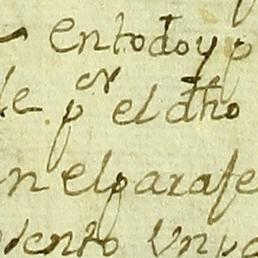 en todo y p
le por el dho
n el parafe
iento un